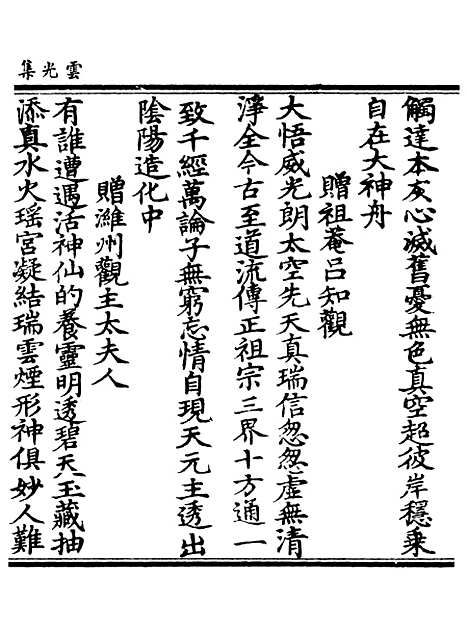 雲光集
觸達本友心滅舊憂無色真空超彼岸穩乘
自在大神舟
贈祖菴呂知觀
大悟威光朗太空先天真瑞信怱怱虛無清
淨全今古至道流傳正祖宗三界十方通一
致千經萬論子無窮忘情自現天元主透出
陰陽造化中
贈濰州觀主太夫人
有誰遭遇活神仙的養靈明透碧天玉藏抽
添真水火瑶宮凝結瑞雲煙形神俱妙人難